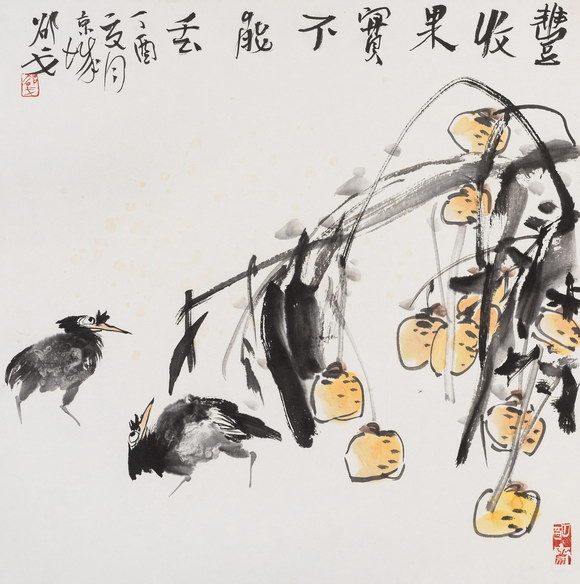 豐收果實不能丢
丁酉
夏月
京城